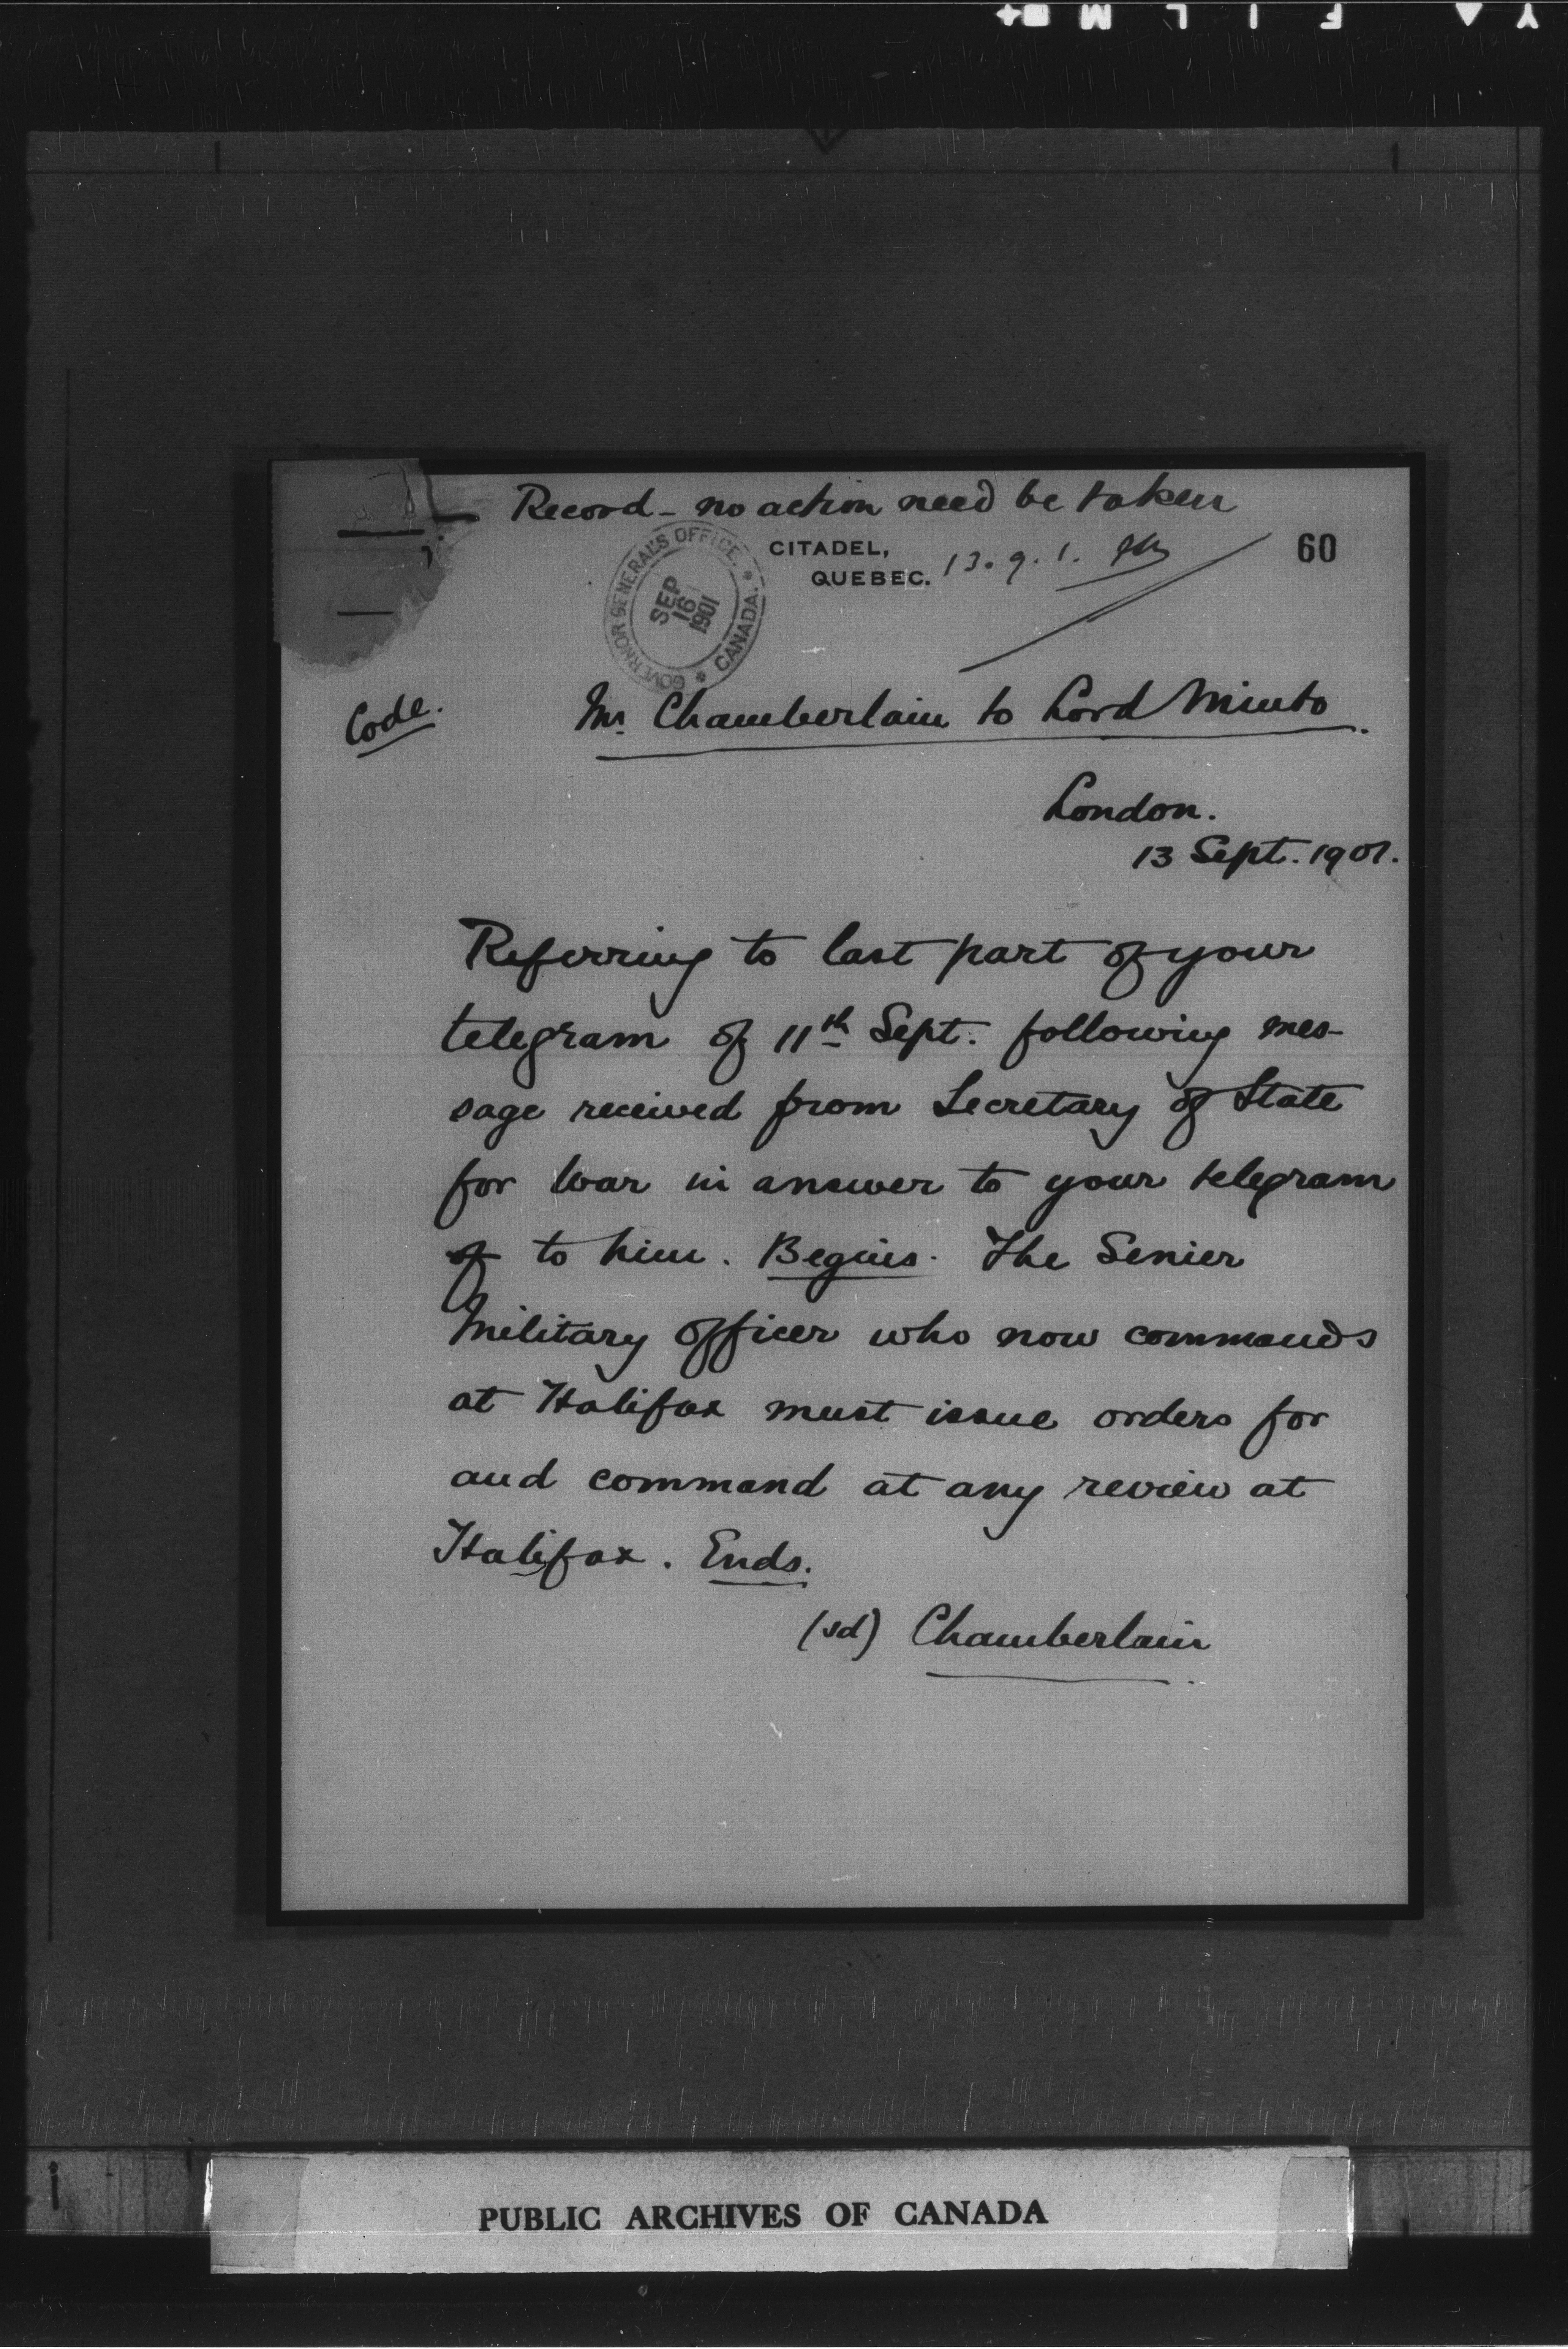 Record - no action need be taken
CITADEL,
QUEBEC.
13.9.1.
60
GOVERNOR GENERAL'S OFFICE. * CANADA. *
SEP
16
1901
Code.
Mr. Chamberlain to Lord Minto.
London.
13 Sept. 1901.
Referring to last part of your
telegram of 11th Sept. following mes-
sage received from Secretary of State
for War in answer to your telegram
of to him. Begins. The Senier
Military Officer who now commands
at Halifax must issue orders for
and command at any review at
Halifax. Ends.
(sd) Chamberlain
PUBLIC ARCHIVES OF CANADA